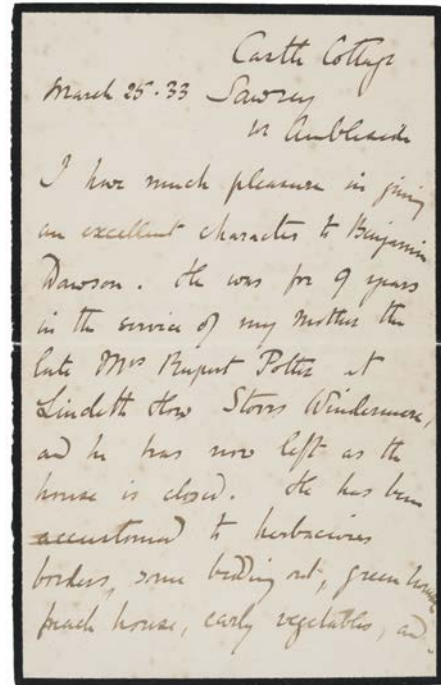 Castle Cottage
March 25. 33 Sawrey
nr Ambleside
I have much pleasure in giving
an excellent character to Benjamin
Dawson. He was for 9 years
in the service of my mother the
late Mrs Rupert Potter at
Lindeth How Storrs Windermere,
and he has now left as the
house is closed. He has been
accustomed to herbacious
borders, some bedding out, green house
peach house, early vegetables, and